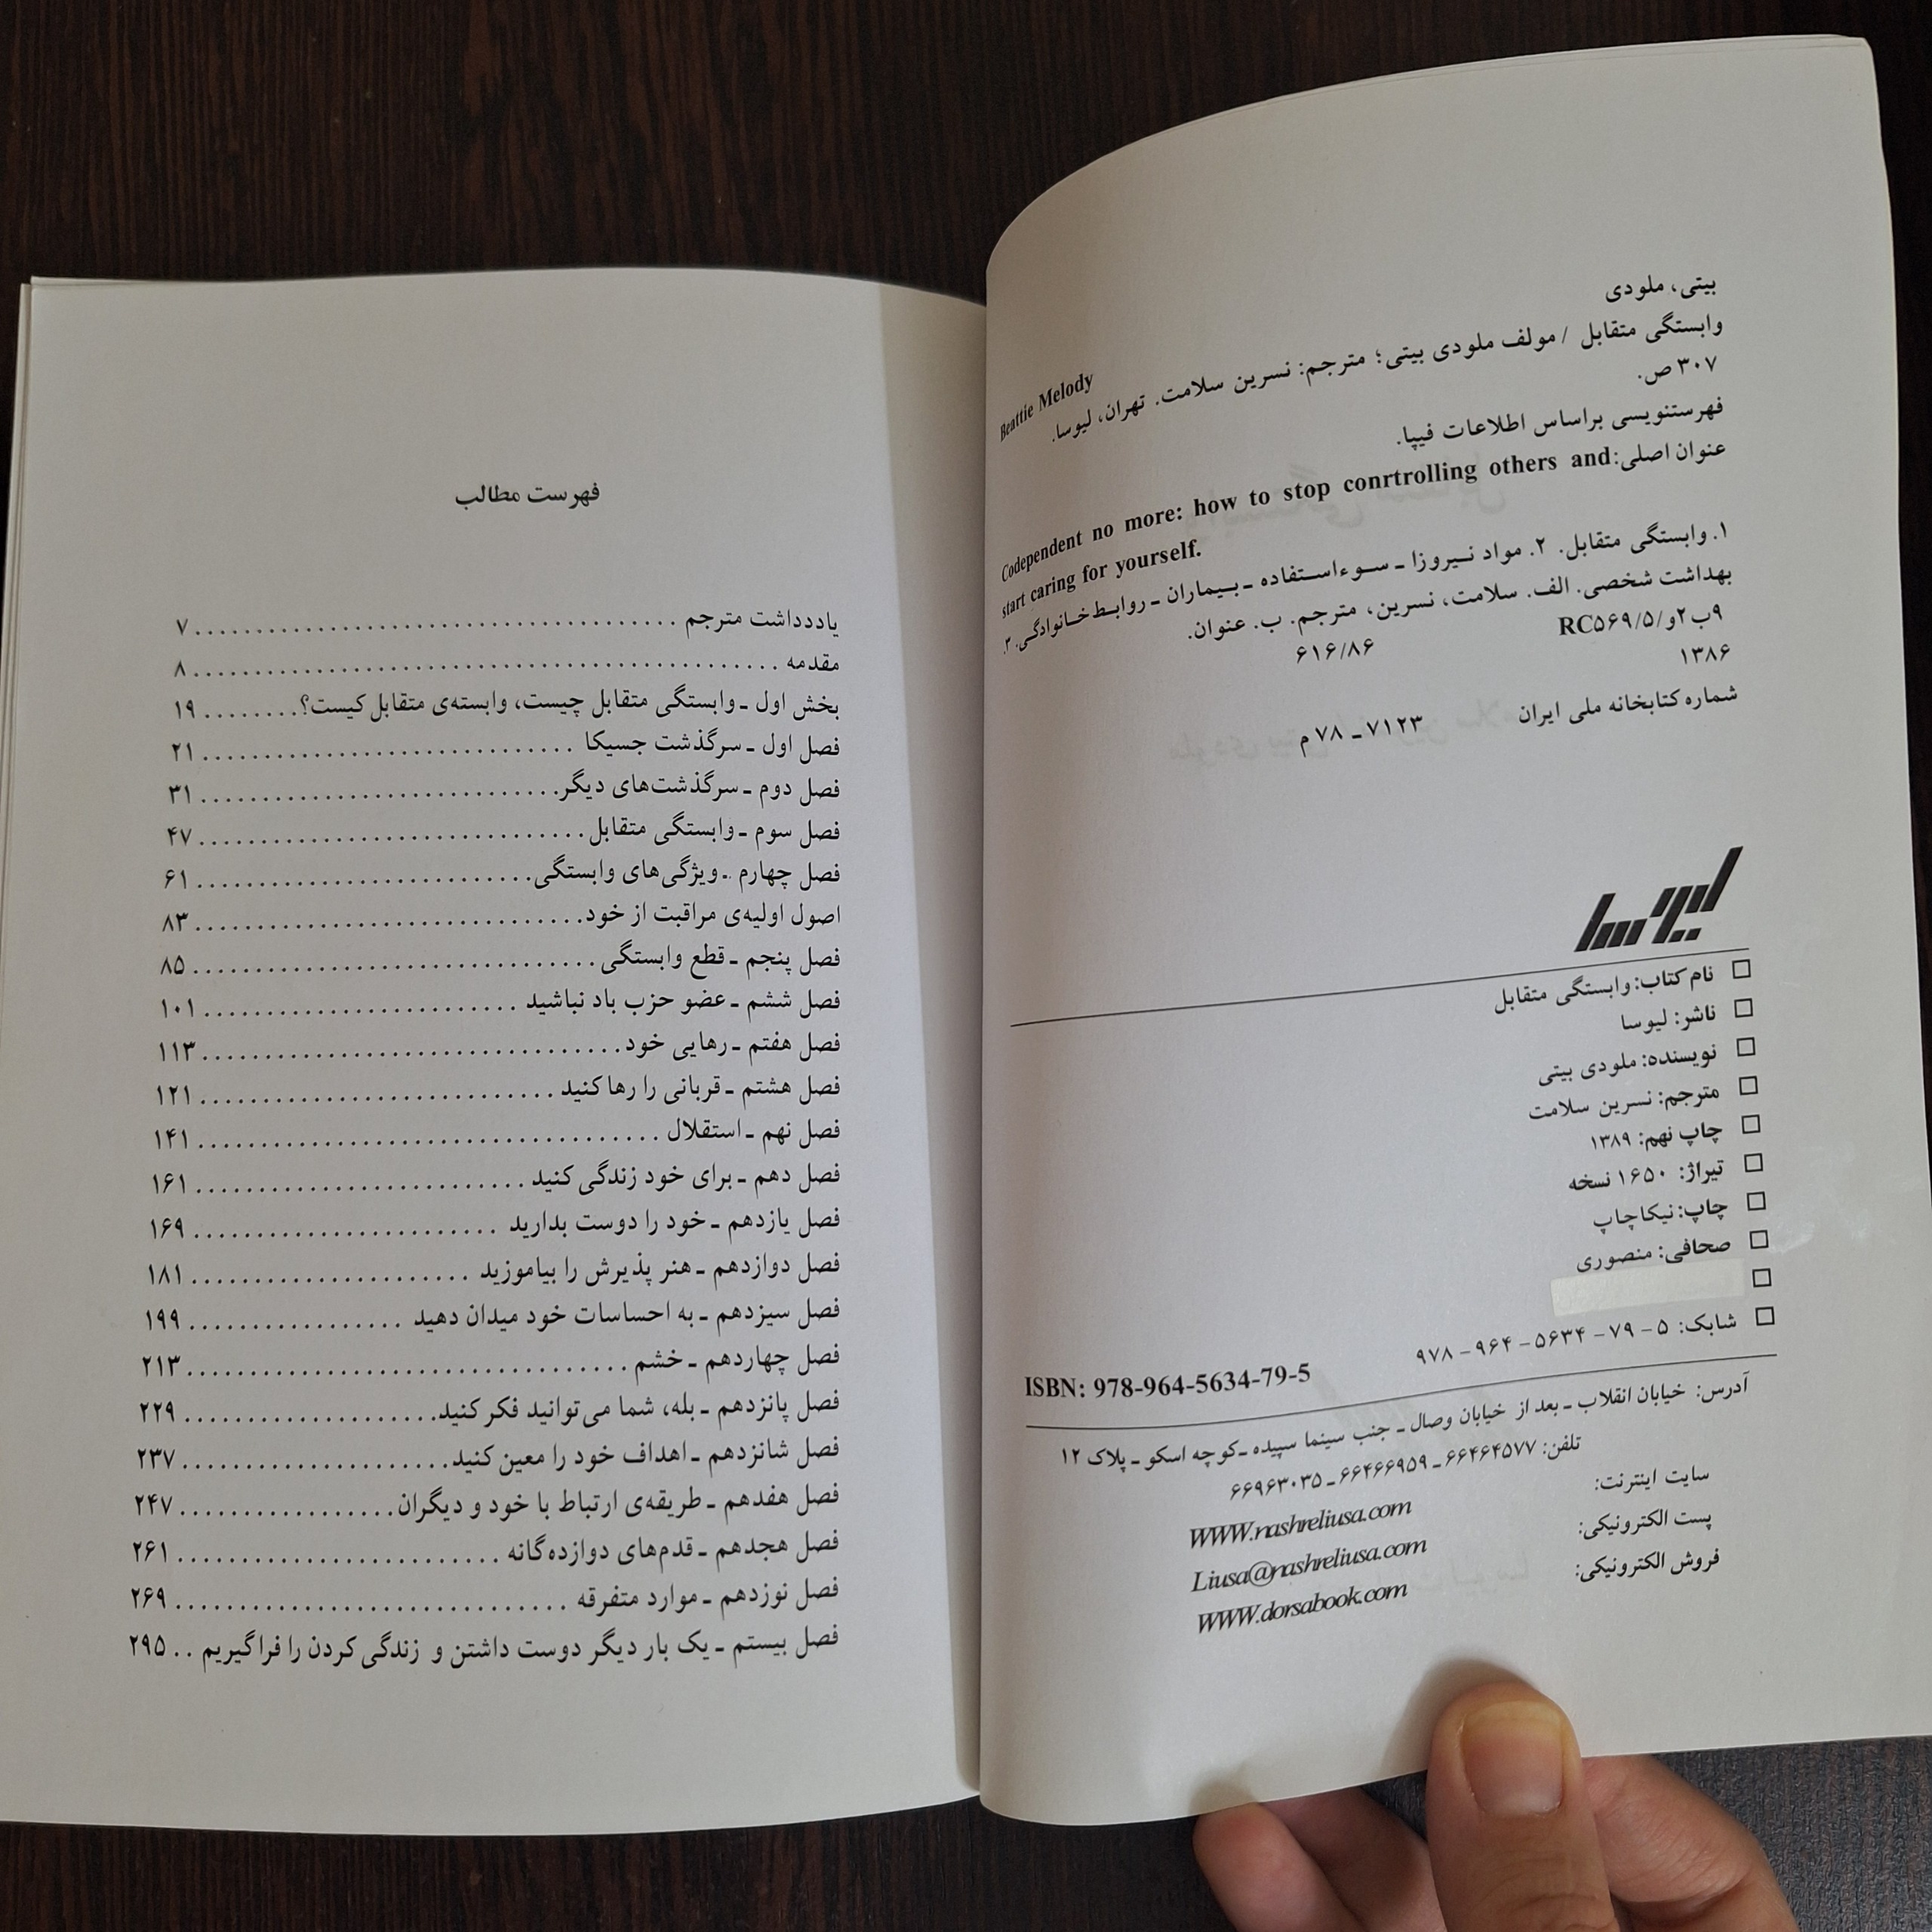 بیتی، ملودی
Beattie Melody
وابستگی متقابل / مولف ملودی بیتی؛ مترجم: نسرین سلامت. تهران، لیوسا.
۳۰۷ ص.
فهرستنویسی براساس اطلاعات فیپا.
عنوان اصلی: Codependent no more: how to stop conrtrolling others and
start caring for yourself.
۱. وابستگی متقابل. ۲. مواد نـیروزا ـ سـوءاسـتفاده ـ بـیماران ـ روابـط‌خـانوادگـی. ۳.
بهداشت شخصی. الف. سلامت، نسرین، مترجم. ب. عنوان.
۹ب۲و/RC۵۶۹/۵
۶۱۶/۸۶
۱۳۸۶
شماره کتابخانه ملی ایران ۷۱۲۳ ـ ۷۸ م
لیوسا
□ نام کتاب: وابستگی متقابل
□ ناشر: لیوسا
□ نویسنده: ملودی بیتی
□ مترجم: نسرین سلامت
□ چاپ نهم: ۱۳۸۹
□ تیراژ: ۱۶۵۰ نسخه
□ چاپ: نیکاچاپ
□ صحافی: منصوری
□
□ شابک: ۵ - ۷۹ - ۵۶۳۴ - ۹۶۴ - ۹۷۸
ISBN: 978-964-5634-79-5
آدرس: خیابان انقلاب ـ بعد از خیابان وصال ـ جنب سینما سپیده ـ کوچه اسکو ـ پلاک ۱۲
تلفن: ۶۶۴۶۴۵۷۷ ـ ۶۶۴۶۶۹۵۹ ـ ۶۶۹۶۳۰۳۵
سایت اینترنت: WWW.nashreliusa.com
پست الکترونیکی: Liusa@nashreliusa.com
فروش الکترونیکی: WWW.dorsabook.com
فهرست مطالب
یاددداشت مترجم ........ ۷
مقدمه ........ ۸
بخش اول ـ وابستگی متقابل چیست، وابسته‌ی متقابل کیست؟ ........ ۱۹
فصل اول ـ سرگذشت جسیکا ........ ۲۱
فصل دوم ـ سرگذشت‌های دیگر ........ ۳۱
فصل سوم ـ وابستگی متقابل ........ ۴۷
فصل چهارم ـ ویژگی‌های وابستگی ........ ۶۱
اصول اولیه‌ی مراقبت از خود ........ ۸۳
فصل پنجم ـ قطع وابستگی ........ ۸۵
فصل ششم ـ عضو حزب باد نباشید ........ ۱۰۱
فصل هفتم ـ رهایی خود ........ ۱۱۳
فصل هشتم ـ قربانی را رها کنید ........ ۱۲۱
فصل نهم ـ استقلال ........ ۱۴۱
فصل دهم ـ برای خود زندگی کنید ........ ۱۶۱
فصل یازدهم ـ خود را دوست بدارید ........ ۱۶۹
فصل دوازدهم ـ هنر پذیرش را بیاموزید ........ ۱۸۱
فصل سیزدهم ـ به احساسات خود میدان دهید ........ ۱۹۹
فصل چهاردهم ـ خشم ........ ۲۱۳
فصل پانزدهم ـ بله، شما می‌توانید فکر کنید ........ ۲۲۹
فصل شانزدهم ـ اهداف خود را معین کنید ........ ۲۳۷
فصل هفدهم ـ طریقه‌ی ارتباط با خود و دیگران ........ ۲۴۷
فصل هجدهم ـ قدم‌های دوازده‌گانه ........ ۲۶۱
فصل نوزدهم ـ موارد متفرقه ........ ۲۶۹
فصل بیستم ـ یک بار دیگر دوست داشتن و زندگی کردن را فراگیریم .. ۲۹۵